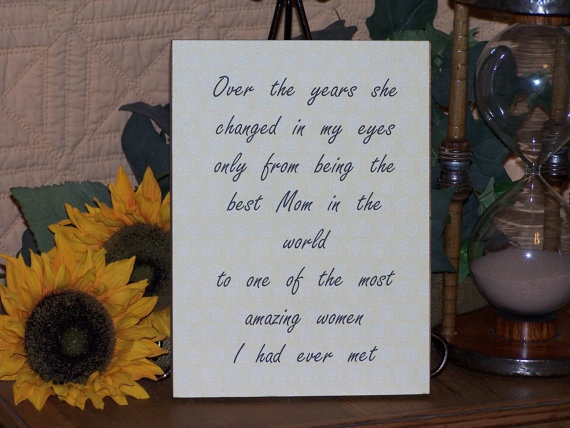 Over the years she
changed in my eyes
only from being the
best Mom in the
world
to one of the most
amazing women
I had ever met